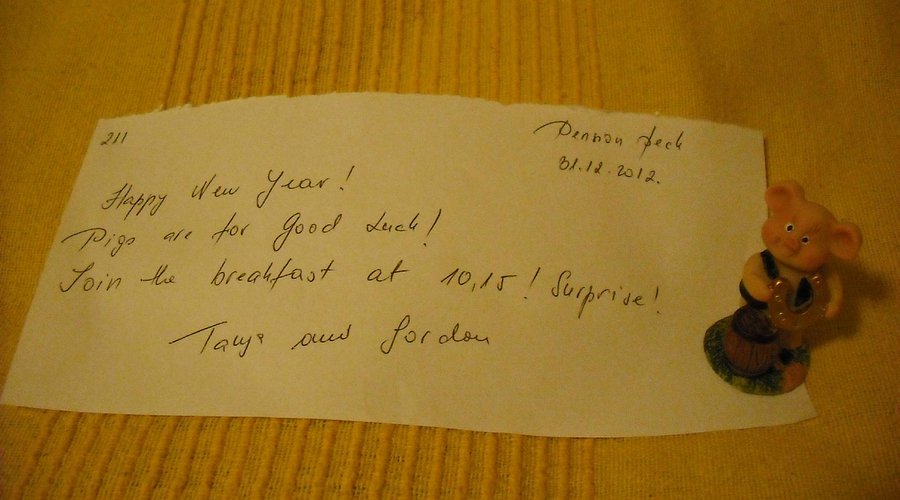 211
Pension Pech
31.12.2012.
Happy New Year!
Pigs are for Good Luck!
Join the breakfast at 10,15! Surprise!
Tanja and Gordon